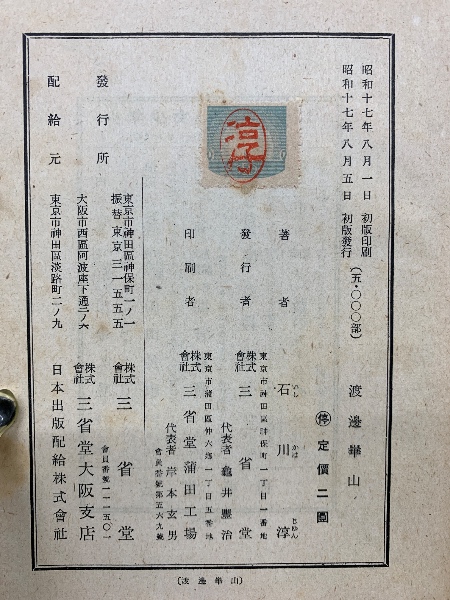 昭和十七年八月一日 初版印刷
昭和十七年八月五日 初版發行
(五・〇〇〇部)
渡邊崋山
停 定價二圓
淳
著者 石川淳
いし かは じゆん
發行者
東京市神田區神保町一丁目一番地
株式會社 三省堂
代表者 龜井豐治
印刷者
東京市蒲田區仲六郷一丁目五番地
株式會社 三省堂蒲田工場
代表者 岸本玄男
會員番號第五六九號
發行所
東京市神田區神保町一ノ一
振替東京三一五五五
株式會社 三省堂
會員番號一一一五〇一
大阪市西區阿波座下通二ノ六
株式會社 三省堂大阪支店
配給元
東京市神田區淡路町二ノ九
日本出版配給株式會社
(渡邊崋山)